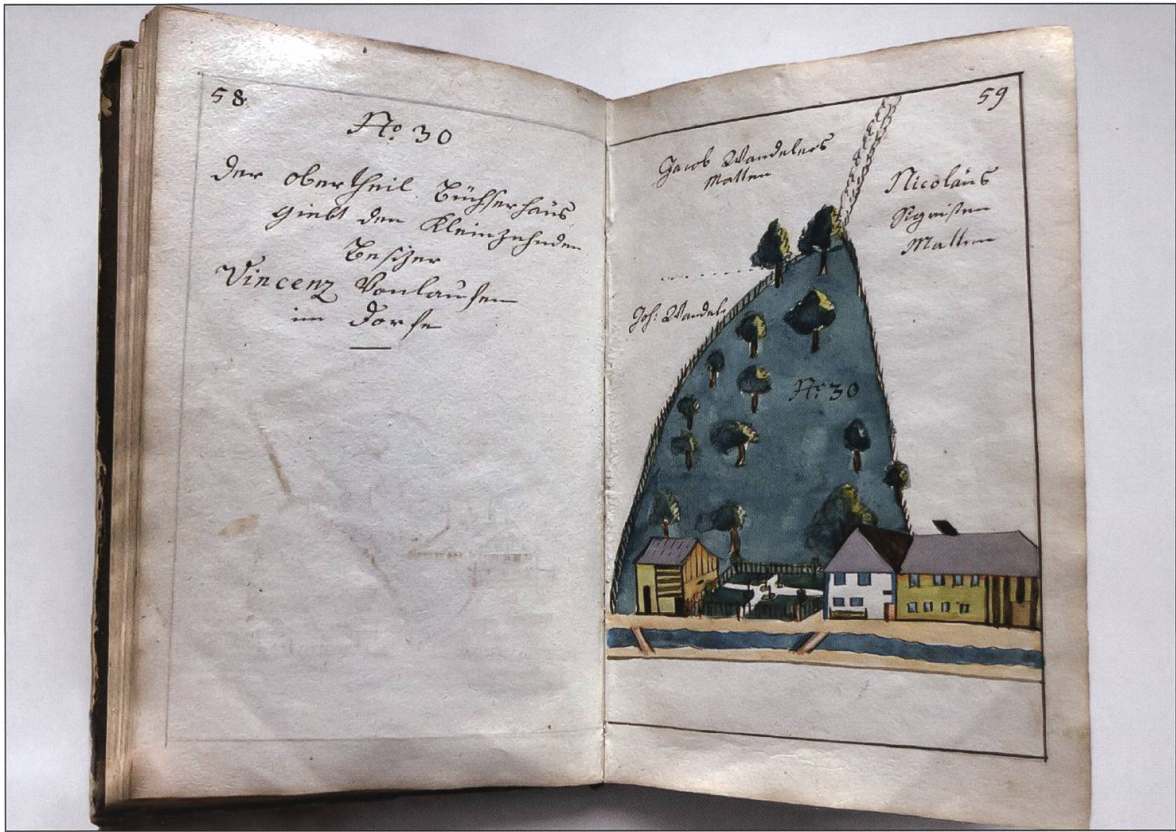 58
No 30
Der obertheil Büchserhaüs
giebt den Kleinzehnden
Besizer
Vincenz Vonlaufen
im Dorfe
59
Jacob Wandelers
Matten
Nicolaüs
Sigristen
Matten
Joh: Wandel
No 30